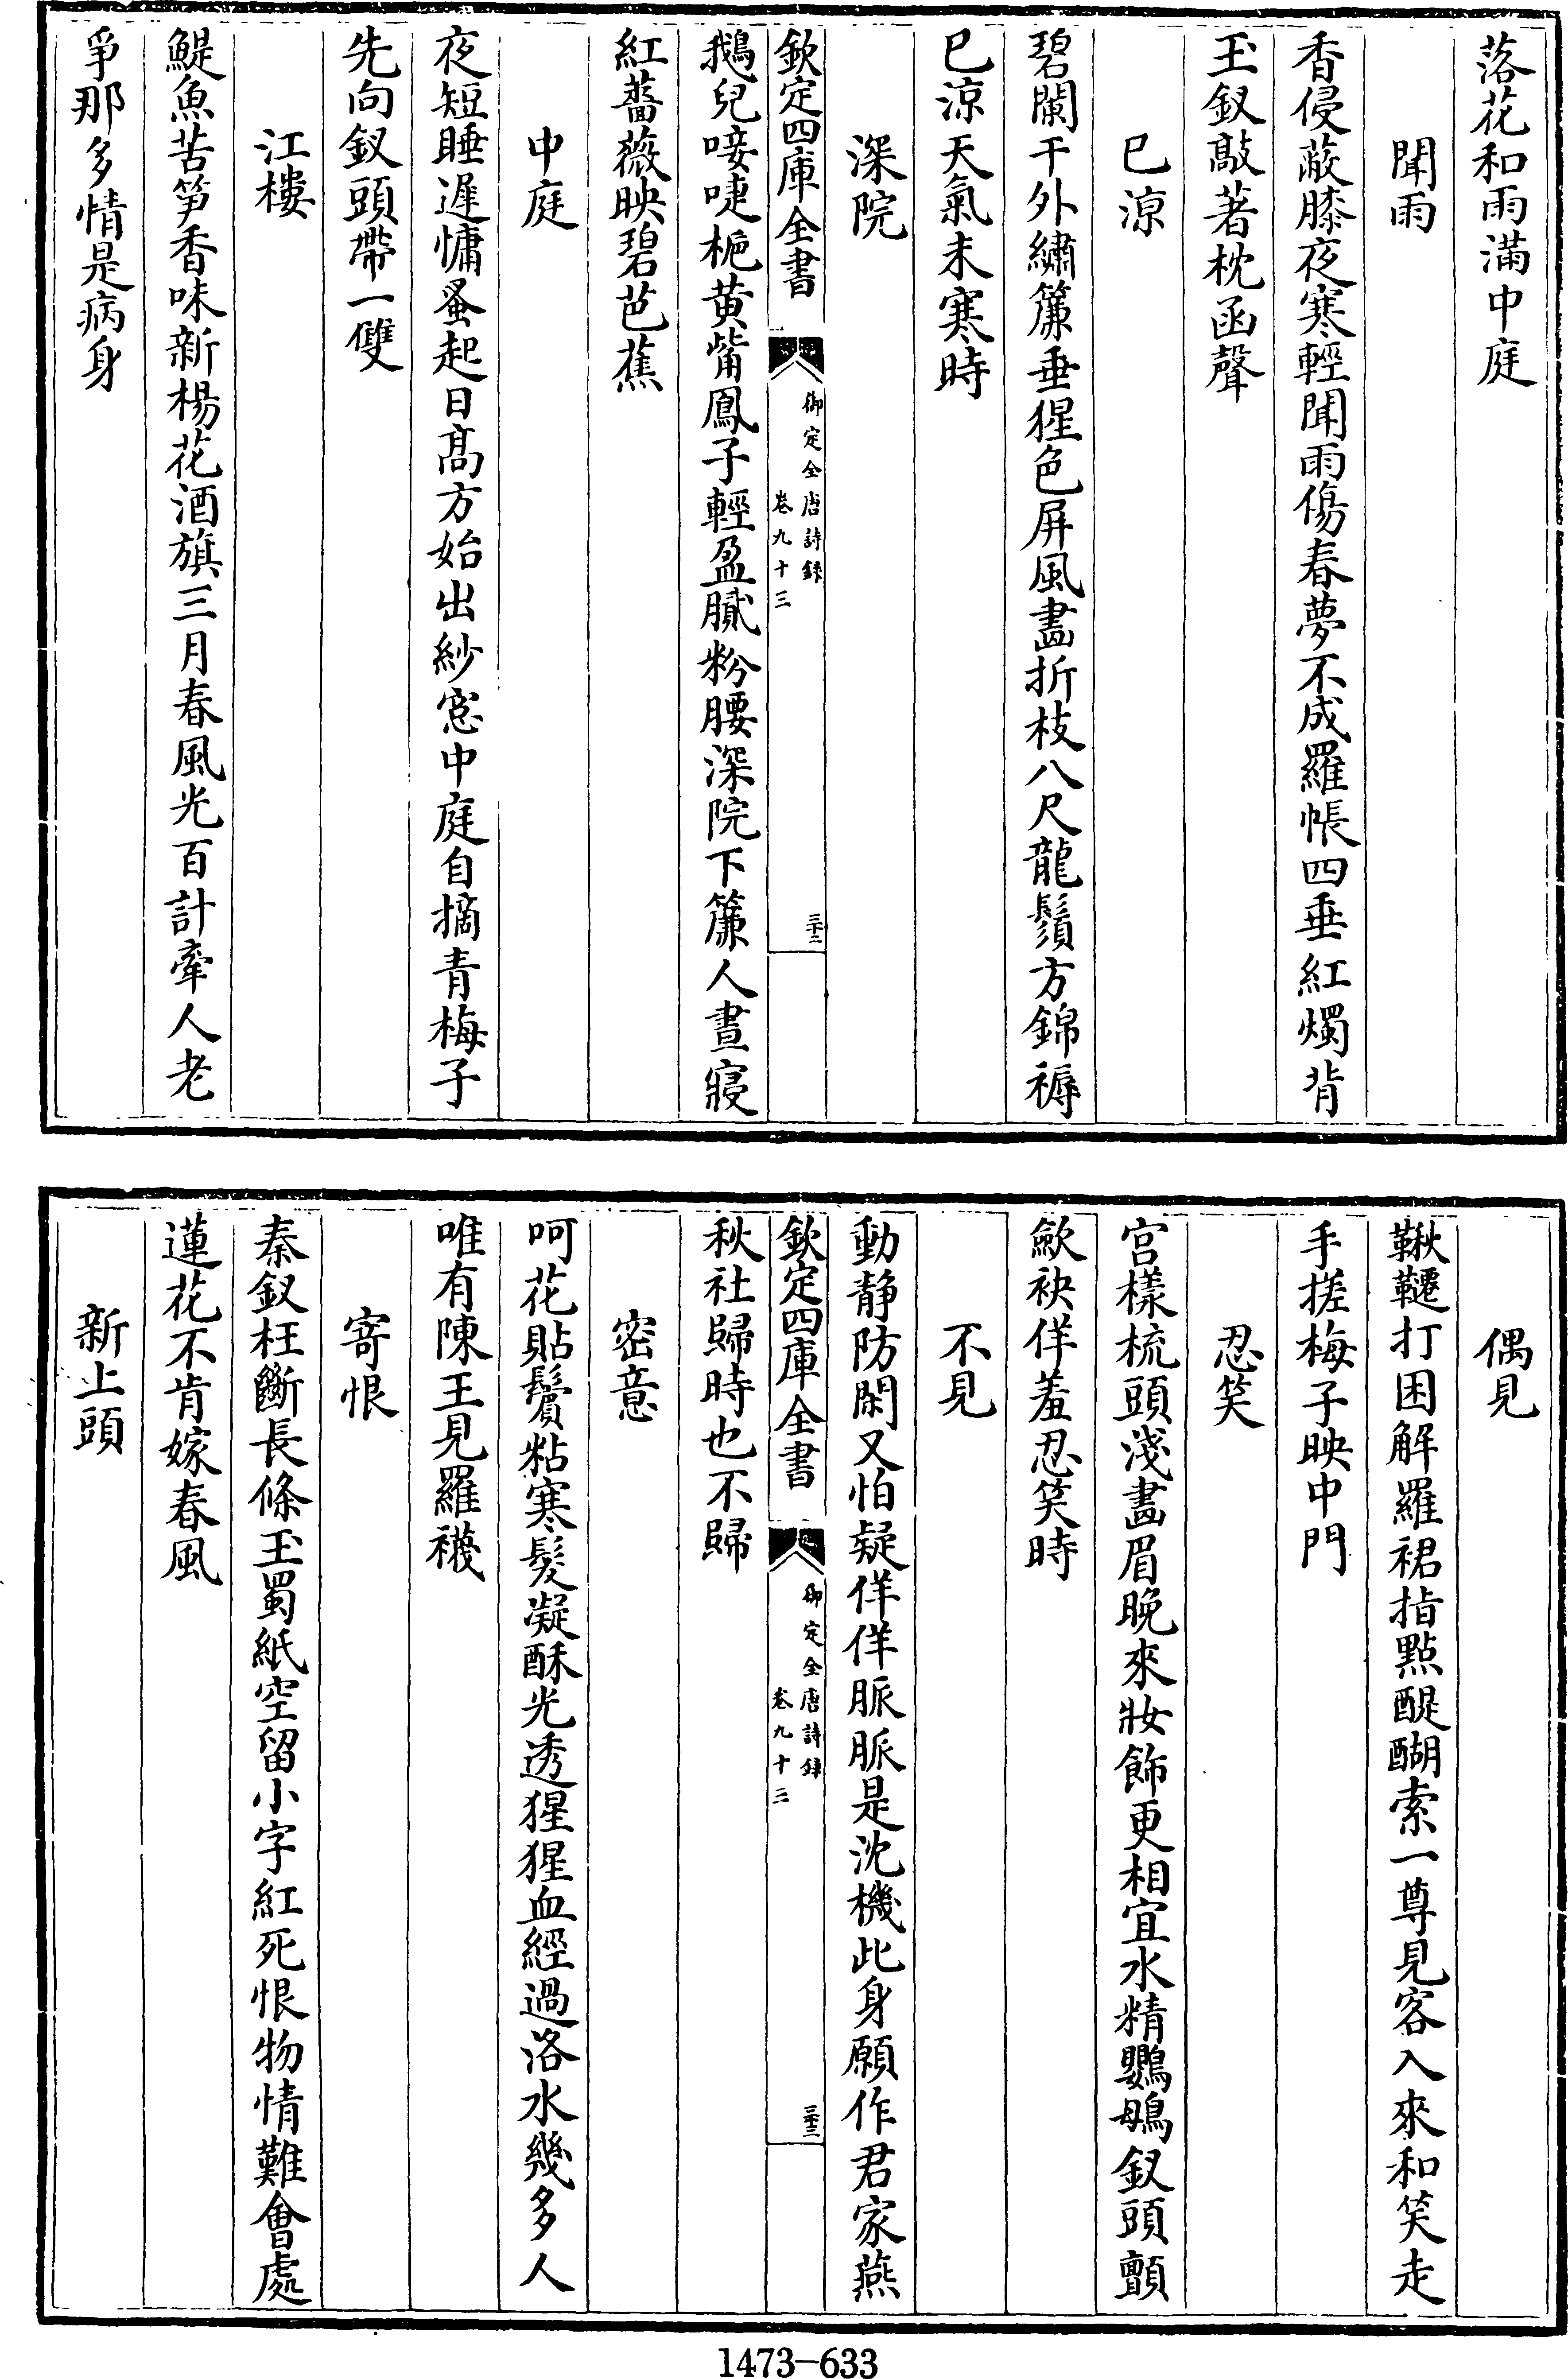 落花和雨滿中庭
聞雨
香侵蔽膝夜寒輕聞雨傷春夢不成羅帳四垂紅燭背
玉釵敲著枕函聲
已涼
碧闌干外繡簾垂猩色屏風畫折枝八尺龍鬚方錦褥
已涼天氣未寒時
深院
欽定四庫全書
御定全唐詩錄
卷九十三
三十二
鵝兒唼啑梔黄觜鳳子輕盈膩粉腰深院下簾人晝寢
紅薔薇映碧芭蕉
中庭
夜短睡遲慵蚤起日髙方始出紗窓中庭自摘青梅子
先向釵頭帶一雙
江樓
鯷魚苦筍香味新楊花酒旗三月春風光百計牽人老
爭那多情是病身
偶見
鞦韆打困解羅裙指點醍醐索一尊見客入來和笑走
手搓梅子映中門
忍笑
宫樣梳頭淺畫眉晚來妝飾更相宜水精鸚鵡釵頭顫
歛袂佯羞忍笑時
不見
動静防閑又怕疑佯佯脈脈是沈機此身願作君家燕
欽定四庫全書
御定全唐詩錄
卷九十三
三十三
秋社歸時也不歸
密意
呵花貼鬢粘寒髮凝酥光透猩猩血經過洛水幾多人
唯有陳王見羅襪
寄恨
秦釵枉斷長條玉蜀紙空留小字紅死恨物情難會處
蓮花不肯嫁春風
新上頭
1473-633